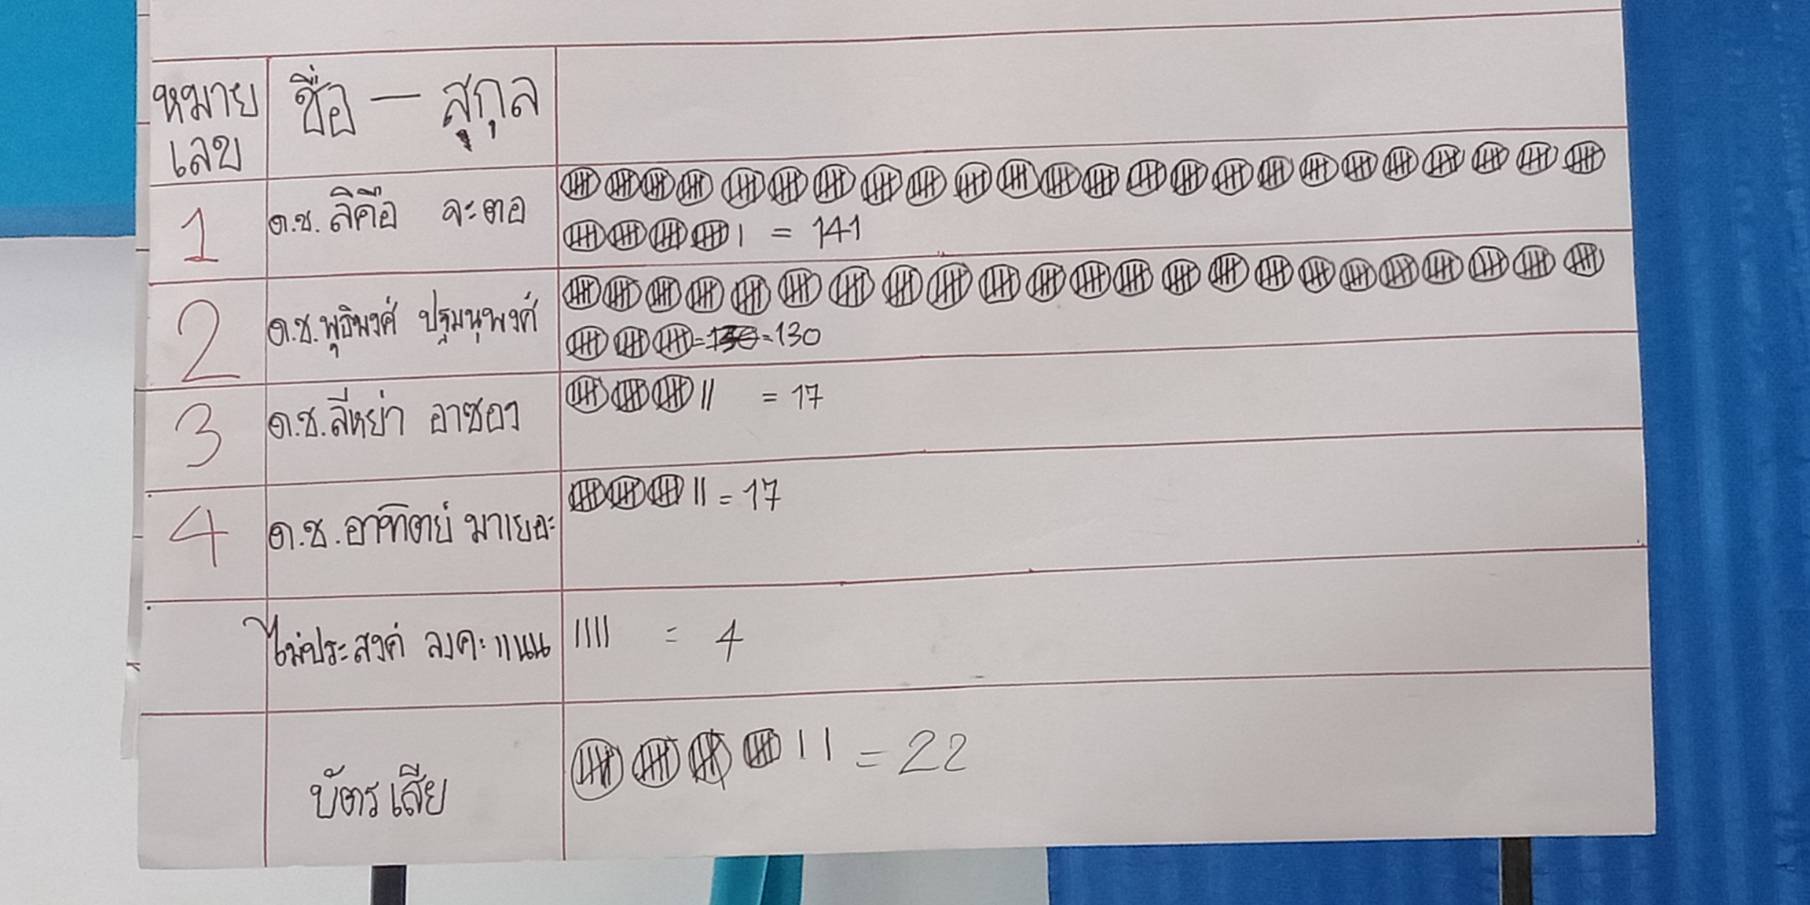 หมาย
เลข
ชื่อ - สุกุล
1
ด.ช. ลีคือ จะตอ
= 141
2
ด.ช. พุธิพงศ์ ปฐมนุพงศ์
= 130 = 130
3
ด.ช. ลีหย่า อาซอง
= 17
4
ด.ช. อาทิตย์ มาเยอะ
= 17
ไม่ประสงค์ ลงคะแนน
= 4
บัตรเสีย
= 22